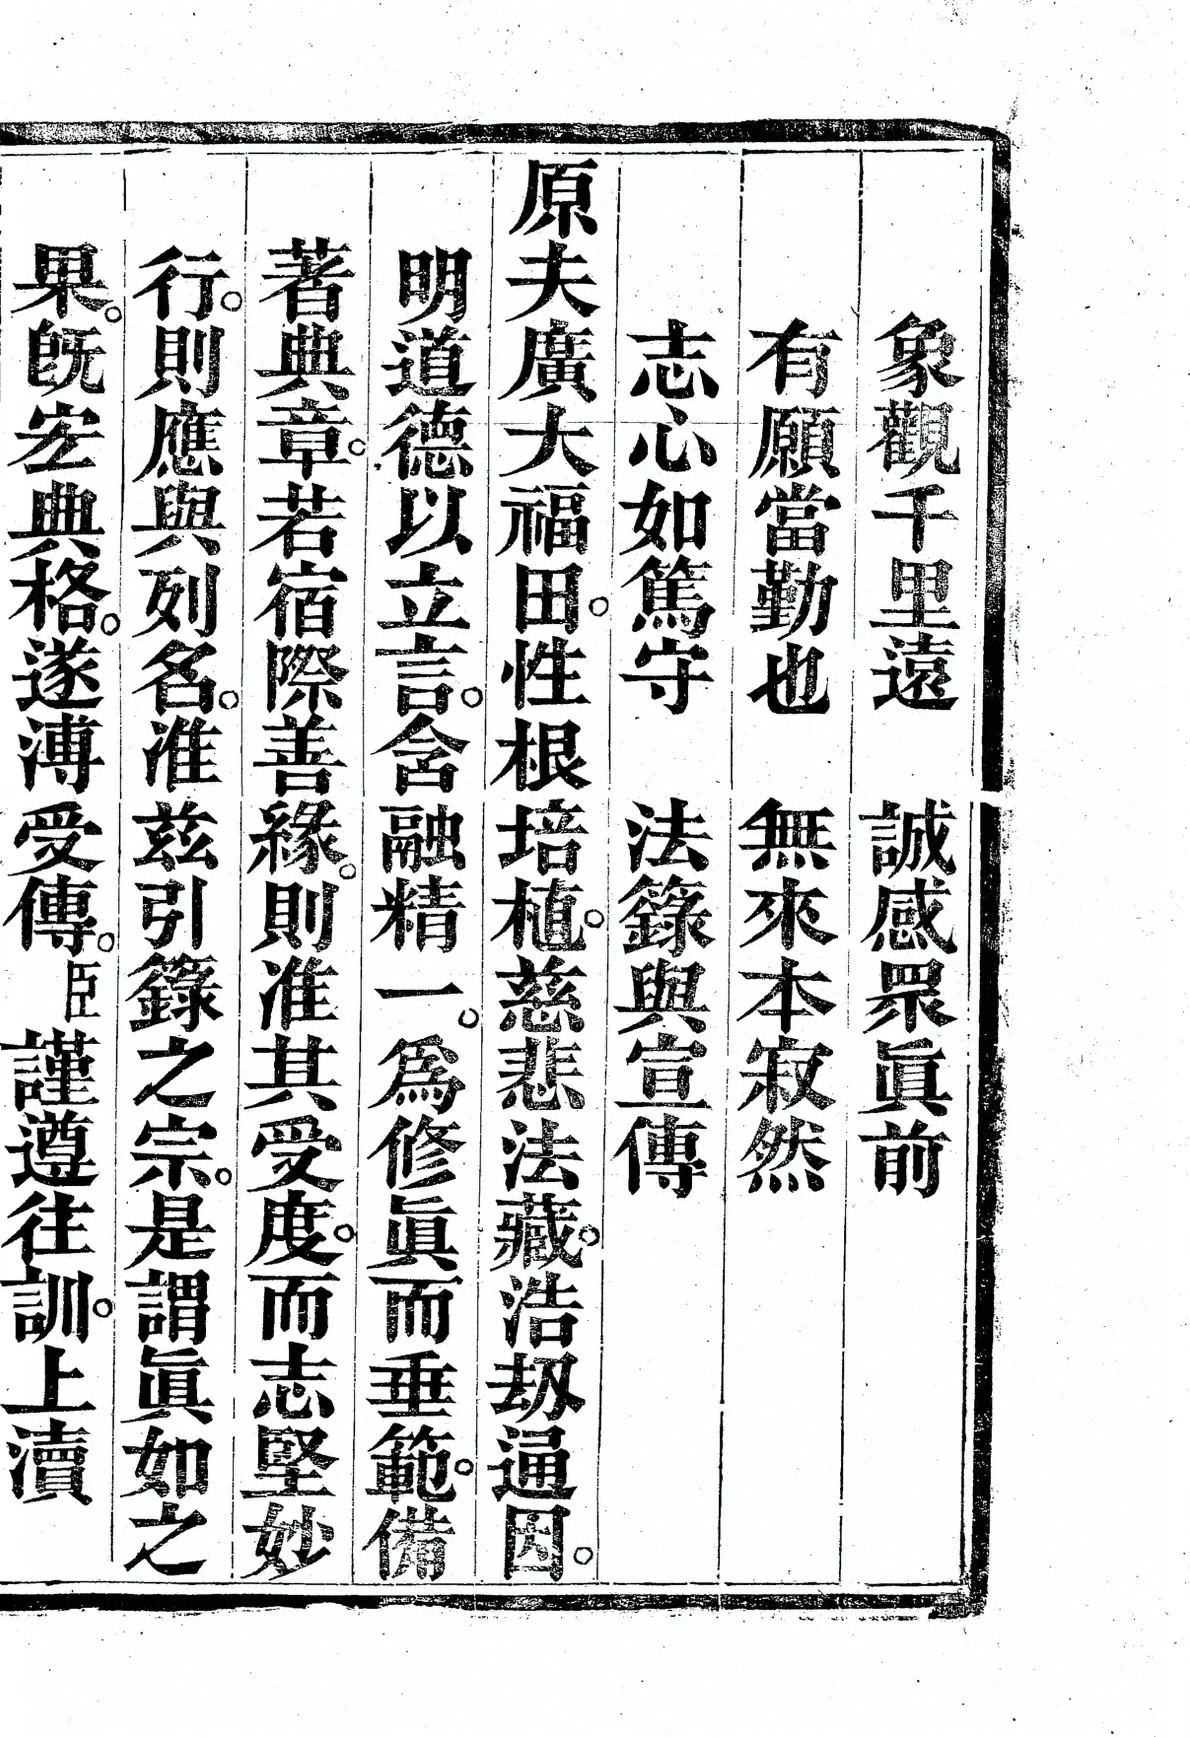 象觀千里遠　誠感眾眞前
有願當勤也　無來本寂然
志心如篤守　法籙與宣傳
原夫廣大福田。性根培植。慈悲法藏。浩刼通因。
明道德以立言。含融精一。爲修眞而垂範。備
著典章。若宿際善緣。則准其受度。而志堅妙
行。則應與列名。准兹引籙之宗。是謂眞如之
果。旣宏典格。遂溥受傳。臣謹遵往訓。上瀆